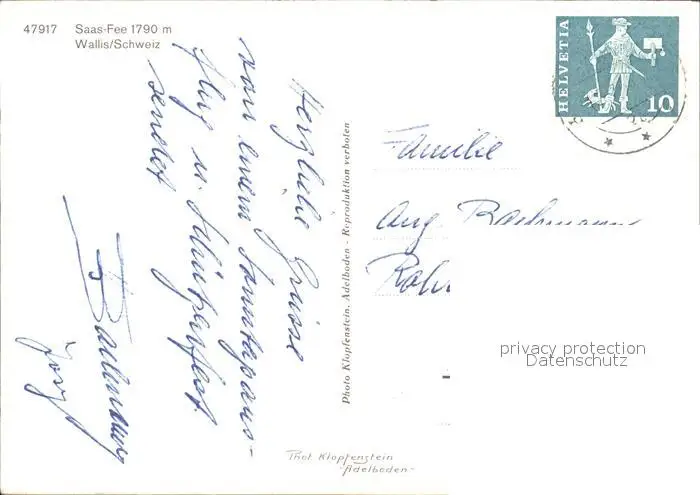 47917 Saas-Fee 1790 m
Wallis/Schweiz
Herzliche Grüsse
von einem Sonntagsaus-
flug u. Schützenfest
sendet
Josef
Photo Klopfenstein, Adelboden - Reproduktion verboten
HELVETIA
10
Familie
Aug. Bachmann
Rohr
privacy protection
Datenschutz
Phot Klopfenstein
-Adelboden-